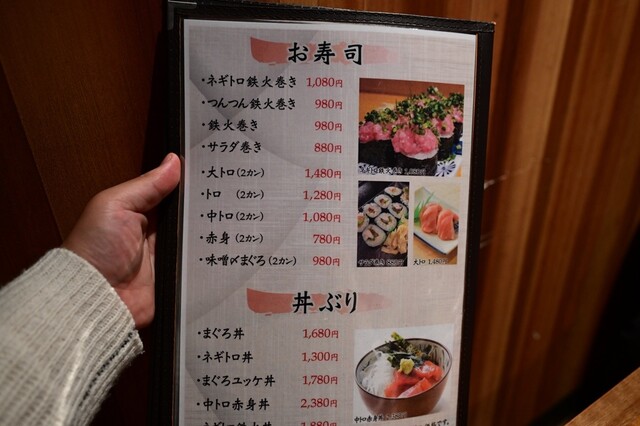 お寿司
・ネギトロ鉄火巻き 1,080円
・つんつん鉄火巻き 980円
・鉄火巻き 980円
・サラダ巻き 880円
・大トロ(2カン) 1,480円
・トロ (2カン) 1,280円
・中トロ(2カン) 1,080円
・赤身(2カン) 780円
・味噌〆まぐろ(2カン) 980円
ネギトロ鉄火巻き 1,080円
サラダ巻き 880円
大トロ 1,480円
丼ぶり
・まぐろ丼 1,680円
・ネギトロ丼 1,300円
・まぐろユッケ丼 1,780円
・中トロ赤身丼 2,380円
中トロ赤身丼